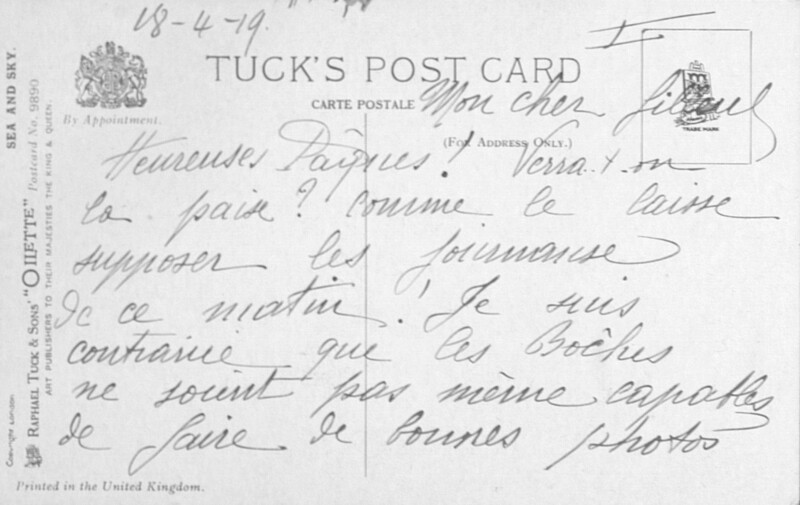 18-4-19.
I
TUCK'S POST CARD
CARTE POSTALE
Mon cher filleul
By Appointment.
(FOR ADDRESS ONLY.)
TRADE MARK
Heureuses Pâques! Verra-t-on
la paix? comme le laisse
supposer les journaux
de ce matin! Je suis
que les Bôches
ne soient pas même capables
de faire de bonnes photos
SEA AND SKY.
RAPHAEL TUCK & SONS' "OILETTE" Postcard No. 9890
ART PUBLISHERS TO THEIR MAJESTIES THE KING & QUEEN.
COPYRIGHT LONDON.
Printed in the United Kingdom.